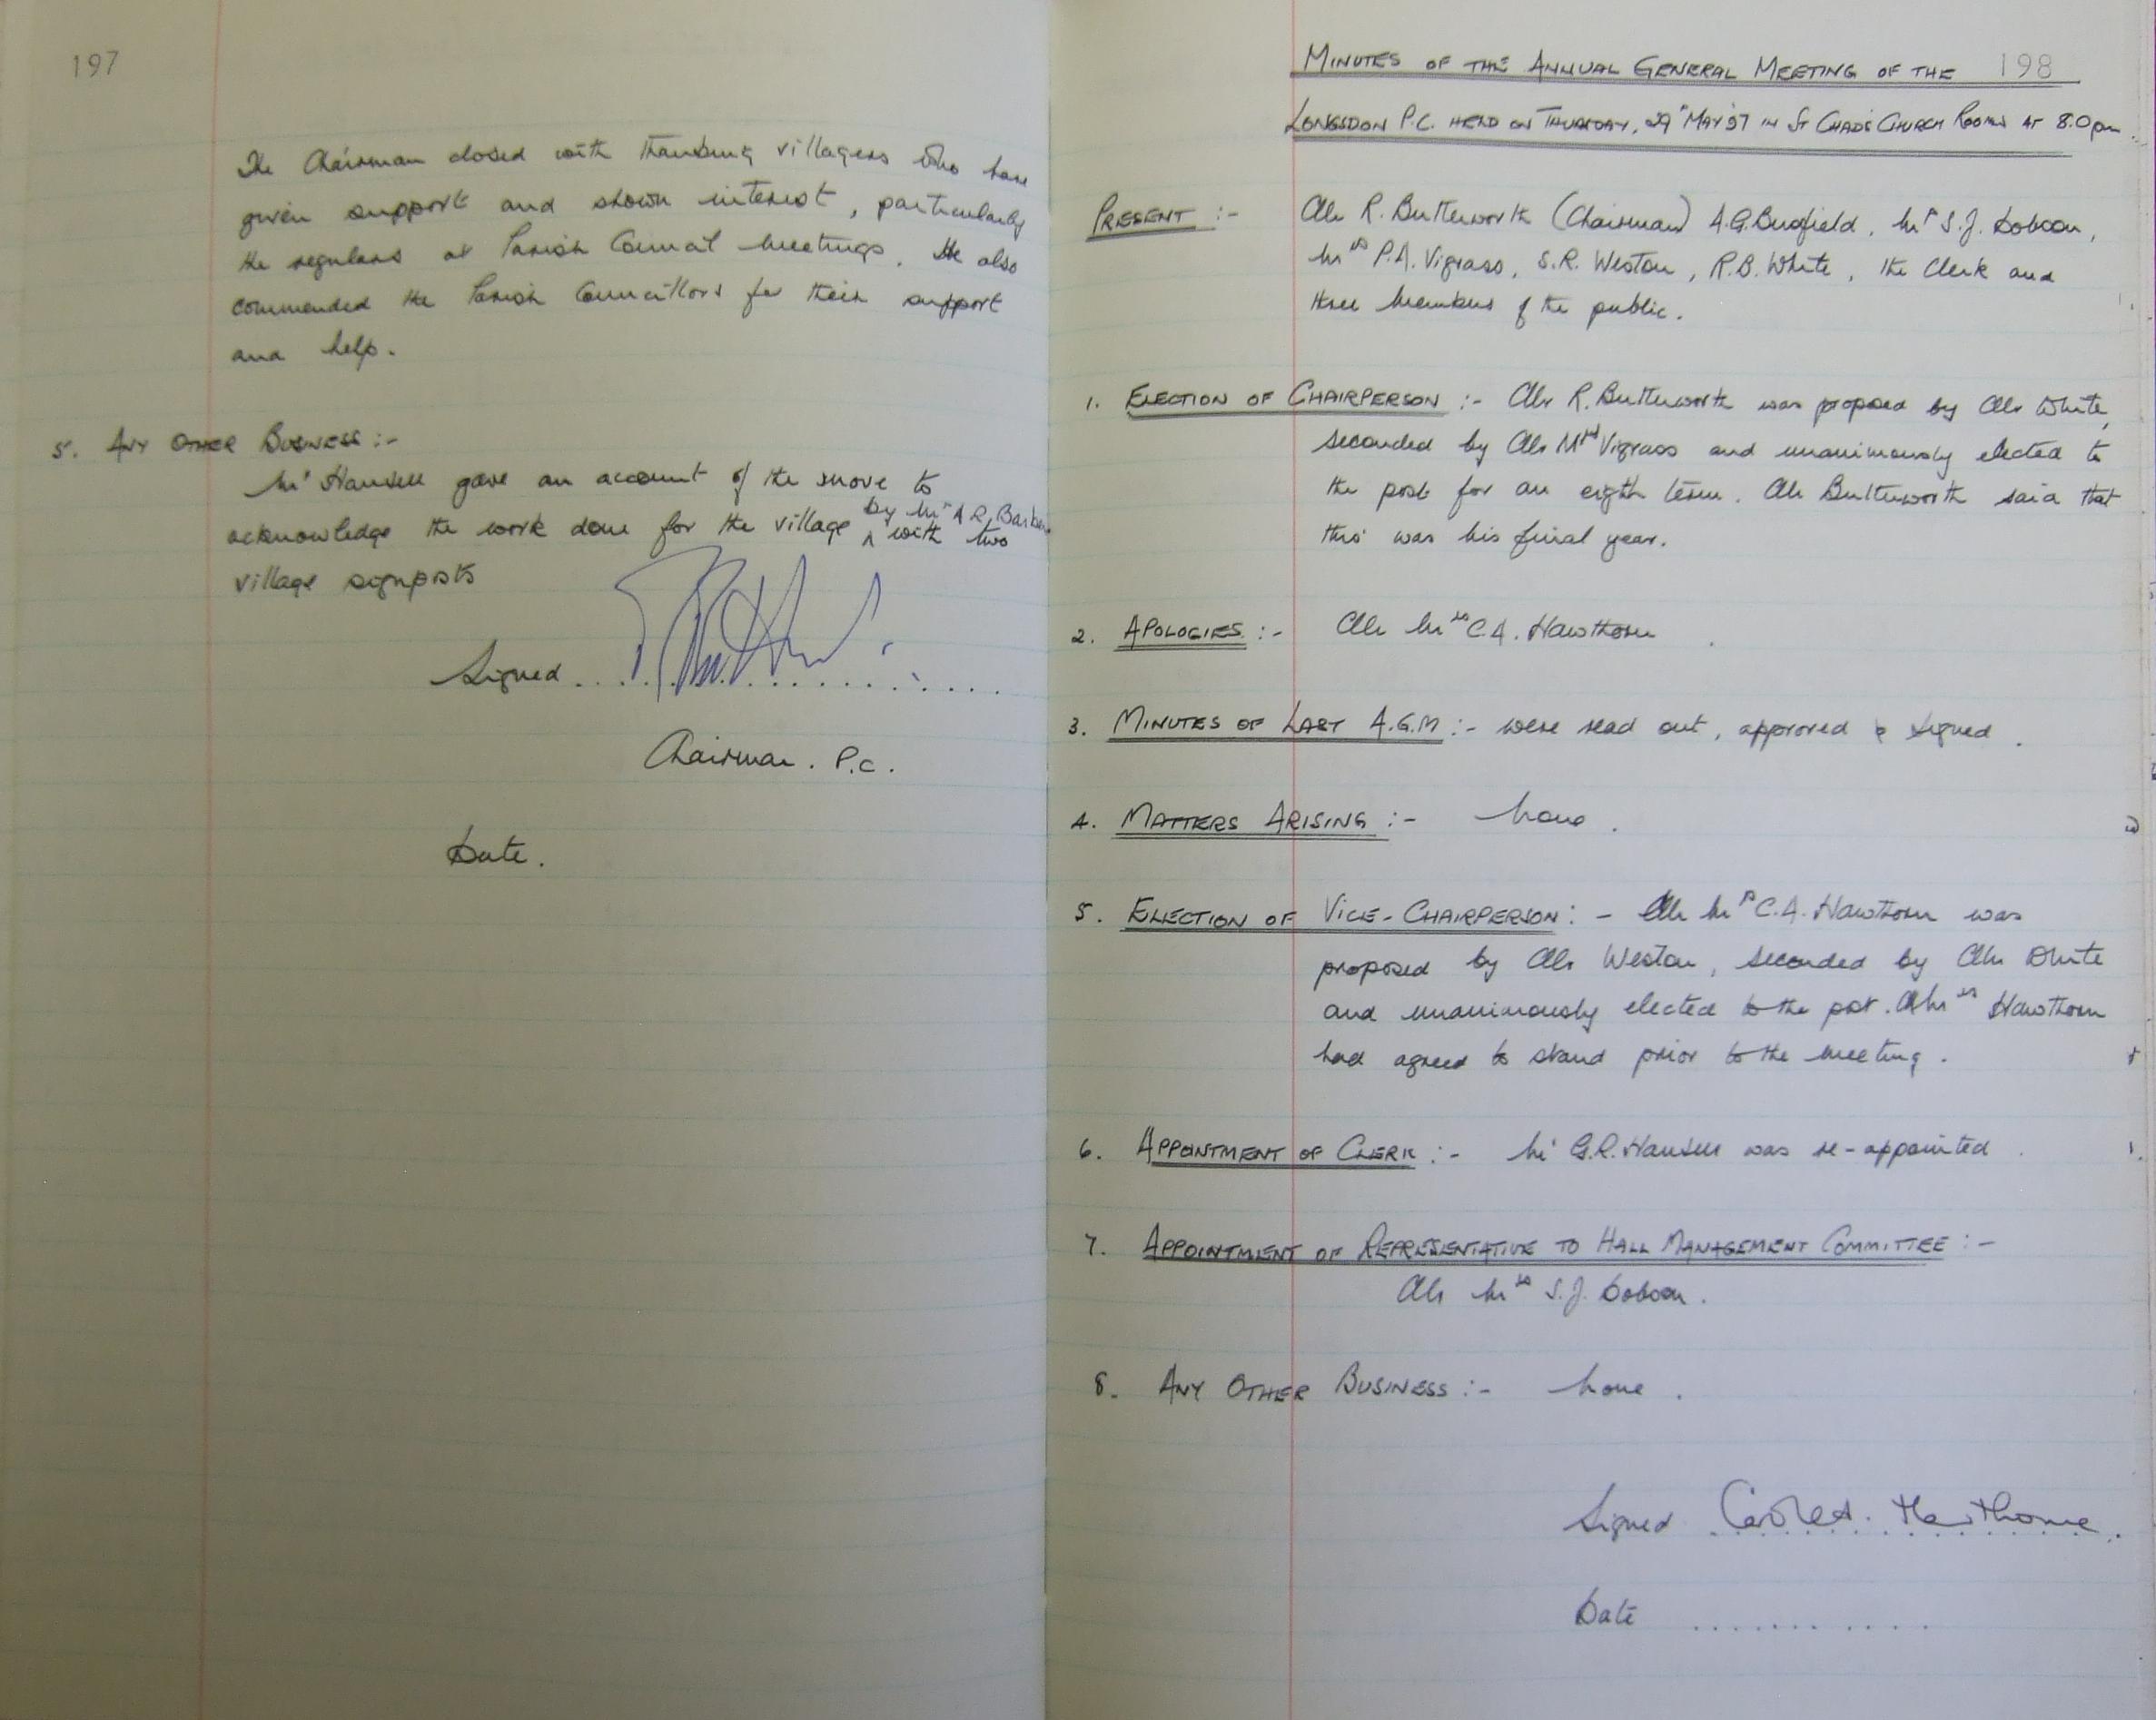 197
The Chairman closed with thanking villagers who have
given support and shown interest, particularly
the regulars at Parish Council Meetings. He also
commended the Parish Councillors for their support
and help.
5. ANY OTHER BUSINESS :-
Mr Hansell gave an account of the move to
by Mr A R, Barber
acknowledge the work done for the village ^ with two
village signposts
Signed
Chairman. P.C.
Date.
198
MINUTES OF THE ANNUAL GENERAL MEETING OF THE
LONGSDON P.C. HELD ON THURSDAY, 29th MAY 97 IN ST CHAD'S CHURCH ROOMS AT 8.0pm.
PRESENT :- Cllr R. Butterworth (Chairman) A.G. Mrs S.J. Dobson,
Mrs P.A. Vigrass, S.R. Weston, R.B. White, the Clerk and
three members of the public.
1. ELECTION OF CHAIRPERSON :- Cllr R. Butterworth was proposed by Cllr White,
seconded by Cllr Mrs Vigrass and unanimously elected to
the post for an eigth term. Cllr Butterworth said that
this was his final year.
2. APOLOGIES :- Cllr Mrs C.A. Hawthorn
3. MINUTES OF LAST A.G.M :- were read out, approved & signed.
4. MATTERS ARISING :- None.
5. ELECTION OF VICE-CHAIRPERSON :- Cllr Mrs C.A. Hawthorn was
proposed by Cllr Weston, seconded by Cllr White
and unanimously elected to the post. Mrs Hawthorn
had agreed to stand prior to the meeting.
6. APPOINTMENT OF CLERK :- Mr G.R. Hansell was re-appointed
7. APPOINTMENT OF REPRESENTATIVE TO HALL MANAGEMENT COMMITTEE :-
Cllr Mrs S.J. Dobson.
8. ANY OTHER BUSINESS :- None.
Signed Carole A. Hawthorne.
Date ...........